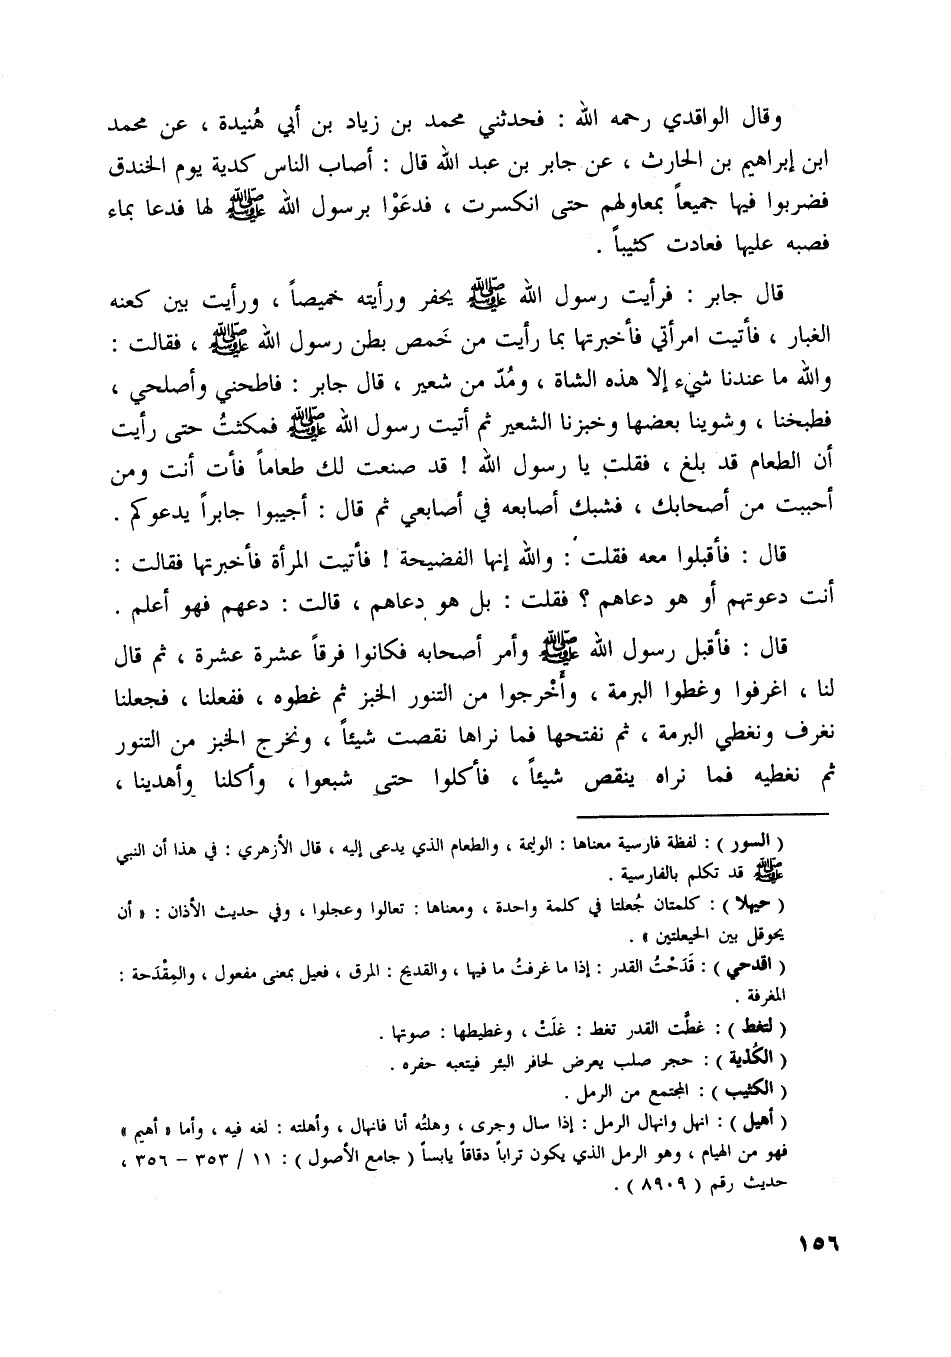 وقال الواقدي رحمه الله : فحدثني محمد بن زياد بن أبي هُنيدة ، عن محمد
ابن إبراهيم بن الحارث ، عن جابر بن عبد الله قال : أصاب الناس كدية يوم الخندق
فضربوا فيها جميعاً بمعاولهم حتى انكسرت ، فدعَوْا برسول الله ﷺ لها فدعا بماء
فصبه عليها فعادت كثيباً .
قال جابر : فرأيت رسول الله ﷺ يحفر ورأيته خميصاً ، ورأيت بين كعنه
الغبار ، فأتيت امرأتي فأخبرتها بما رأيت من خَمص بطن رسول الله ﷺ ، فقالت :
والله ما عندنا شيء إلا هذه الشاة ، ومُدّ من شعير ، قال جابر : فاطحني وأصلحي ،
فطبخنا ، وشوينا بعضها وخبزنا الشعير ثم أتيت رسول الله ﷺ فمكثتُ حتى رأيت
أن الطعام قد بلغ ، فقلت يا رسول الله ! قد صنعت لك طعاماً فأت أنت ومن
أحببت من أصحابك ، فشبك أصابعه في أصابعي ثم قال : أجيبوا جابراً يدعوكم .
قال : فأقبلوا معه فقلت : والله إنها الفضيحة ! فأتيت المرأة فأخبرتها فقالت :
أنت دعوتهم أو هو دعاهم ؟ فقلت : بل هو دعاهم ، قالت : دعهم فهو أعلم .
قال : فأقبل رسول الله ﷺ وأمر أصحابه فكانوا فرقاً عشرة عشرة ، ثم قال
لنا ، اغرفوا وغطوا البرمة ، وأَخْرجوا من التنور الخبز ثم غطوه ، ففعلنا ، فجعلنا
نغرف ونغطي البرمة ، ثم نفتحها فما نراها نقصت شيئاً ، ونخرج الخبز من التنور
ثم نغطيه فما نراه ينقص شيئاً ، فأكلوا حتى شبعوا ، وأكلنا وأهدينا ،
( السور ) : لفظة فارسية معناها : الوليمة ، والطعام الذي يدعى إليه ، قال الأزهري : في هذا أن النبي
ﷺ قد تكلم بالفارسية .
( حيهلا ) : كلمتان جُعلتا في كلمة واحدة ، ومعناها : تعالوا وعجلوا ، وفي حديث الأذان : « أن
يحوقل بين الحيعلتين » .
( اقدحي ) : قَدَحْتُ القدر : إذا ما غرفتُ ما فيها ، والقديح : المرق ، فعيل بمعنى مفعول ، والمِقْدَحة :
المغرفة .
( لتغط ) : غطَّت القدر تغط : غلَتْ ، وغطيطها : صوتها .
( الكُدْية ) : حجر صلب يعرض لحافر البئر فيتعبه حفره .
( الكثيب ) : المجتمع من الرمل .
( أهيل ) : انهل وانهال الرمل : إذا سال وجرى ، وهلتُه أنا فانهال ، وأهلته : لغه فيه ، وأما « أهيم »
فهو من الهيام ، وهو الرمل الذي يكون تراباً دقاقاً يابساً ( جامع الأصول ) : ١١ / ٣٥٣ – ٣٥٦ ،
حديث رقم ( ٨٩٠٩ ) .
١٥٦